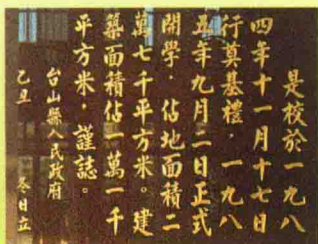 是校於一九八
四年十一月十七日
行奠基禮．一九八
五年九月二日正式
開學．佔地面積二
萬七千平方米。建
築面積佔一萬一千
平方米．謹誌。
台山縣人民政府
乙丑 冬日立